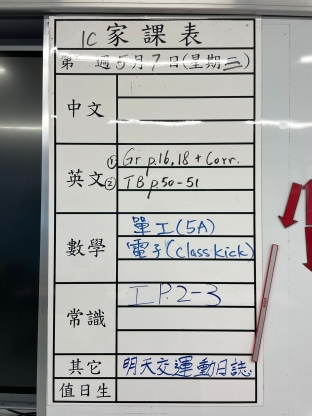 1C 家課表
第 週 5月7日(星期三)
中文
英文 ① Gr p.16,18 + Corr.
② TB p.50-51
數學 單工(5A)
電子(Classkick)
常識 工P.2-3
其它 明天交運動日誌
值日生